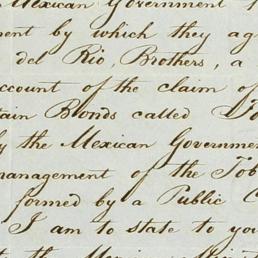 Mexican Government
ment by which they ag
del Rio, Brothers, a
account of the claim of
tain Bonds called To
by the Mexican Governmen
management of the Tob
formed by a Public C
I am to state to yo
the Mexican